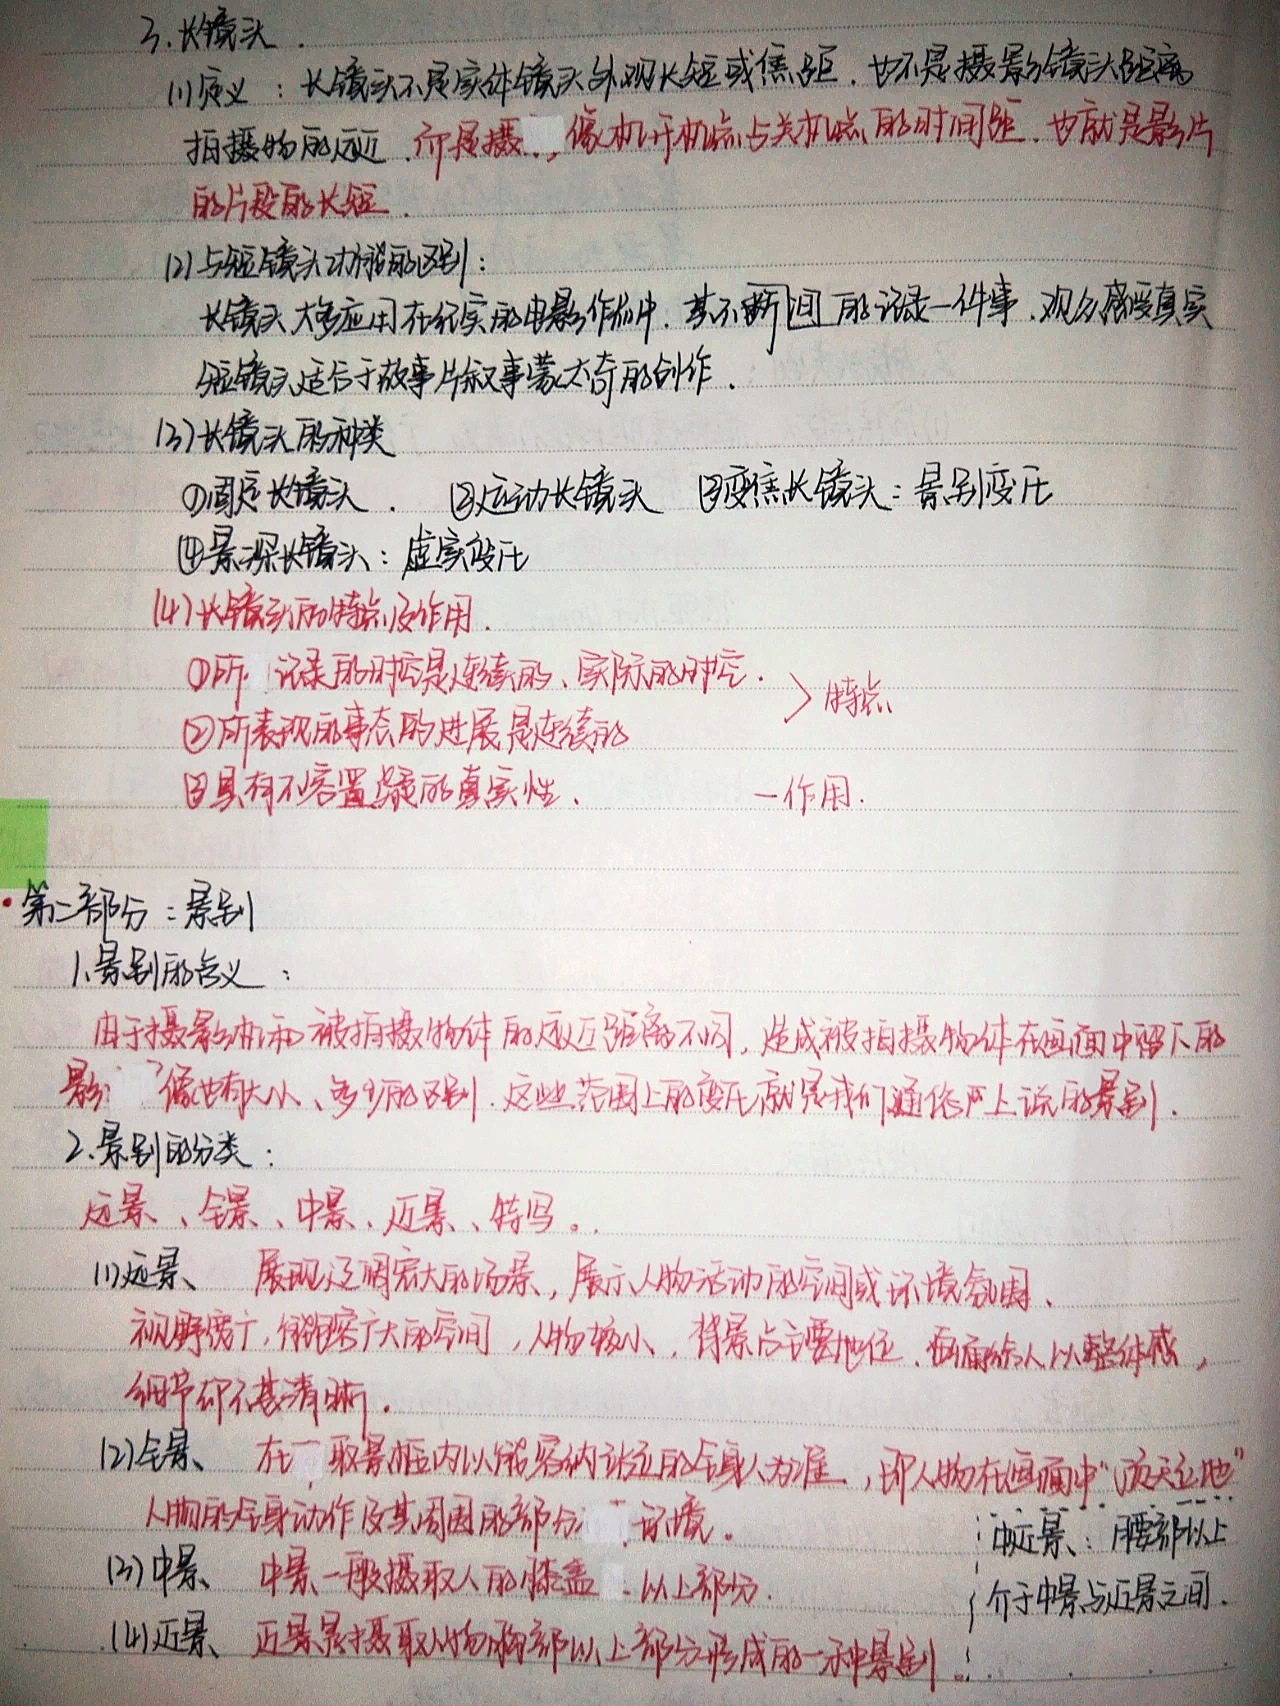 3.长镜头.
(1)定义：长镜头不是实体镜头外观长短或焦距.也不是摄影镜头距离
拍摄物的远近.而是摄像机开机点与关机点的时间距.也就是影片
的片段的长短.
(2)与短镜头功能的区别：
长镜头大多应用在纪实的电影作品中.其不断间的记录一件事.观众感受真实
短镜头适合于故事片叙事蒙太奇的创作.
(3)长镜头的种类
①固定长镜头. ②运动长镜头 ③变焦长镜头：景别变化
④景深长镜头：虚实变化
(4)长镜头的特点及作用.
①所记录的时空是连续的、实际的时空. >特点
②所表现的事态的进展是连续的
③具有不容置疑的真实性. —作用.
第二部分：景别
1.景别的含义：
由于摄影机和被拍摄物体的远近距离不同,造成被拍摄物体在画面中留下的
影像也有大小、多少的区别.这些范围上的变化就是我们通俗上说的景别.
2.景别的分类：
远景、全景、中景、近景、特写。
(1)远景、 展现辽阔宏大的场景,展示人物活动的空间或环境氛围.
视野宽广,能容广大的空间,人物极小,背景占主要地位.画面给人以整体感,
细节却不甚清晰.
(2)全景、 在取景框内以能容纳站立的全身人为准,即人物在画面中“顶天立地”
人物的全身动作及其周围的部分环境。
中近景、：腰部以上
(3)中景、 中景一般摄取人的膝盖以上部分.
介于中景与近景之间.
(4)近景、 近景是摄取人物胸部以上部分形成的一种景别.